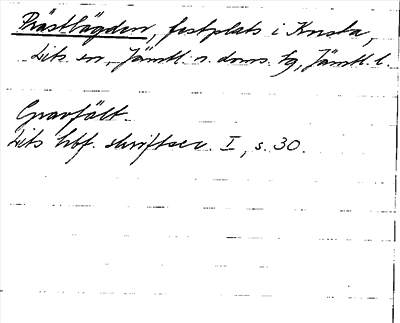 Prästlägden, festplats i Knsta,
Lits sn, Jämtl. n. doms. tg, Jämtl. l.
Gravfält.
Lits hbf. skriftser. I, s. 30.